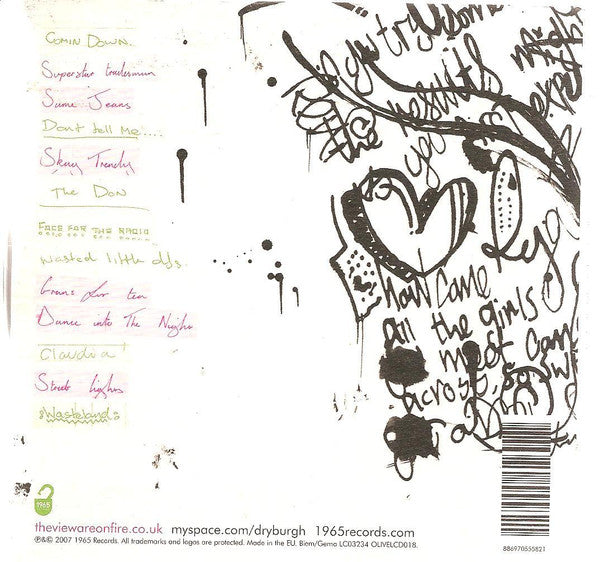 Comin Down.
Superstar tradesman
Same Jeans
Dont tell Me....
Skag Trendy
The Don
FACE FOR THE RADIO
wasted little djs.
Grans for tea
Dance into The Night
Claudia
Street lights
Wasteland
if you try some
might
the results
you
expe
how come
all the girls
I meet
across, so
1965
theviewareonfire.co.uk myspace.com/dryburgh 1965records.com
℗&© 2007 1965 Records. All trademarks and logos are protected. Made in the EU. Biem/Gema LC03234 OLIVELCD018.
886970555821